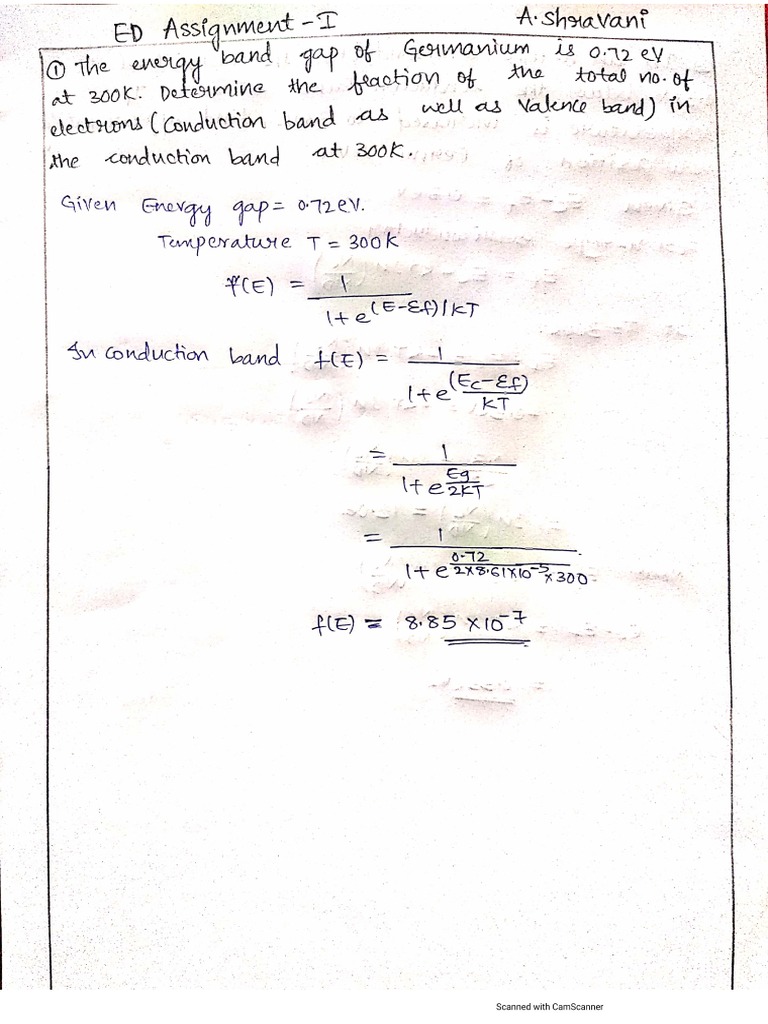 ED Assignment - I
A. Shravani
① The energy band gap of Germanium is 0.72 eV
at 300K. Determine the fraction of the total no. of
electrons (Conduction band as well as Valence band) in
the conduction band at 300K.
Given Energy gap = 0.72 eV.
Temperature T = 300K
f(E) = 1 / 1+e^(E-Ef)/KT
In Conduction band f(E) = 1 / 1+e^(Ec-Ef)/KT
= 1 / 1+e^Eg/2KT
= 1 / 1+e^0.72/2×8.61×10^-5×300
f(E) = 8.85 ×10^-7
Scanned with CamScanner